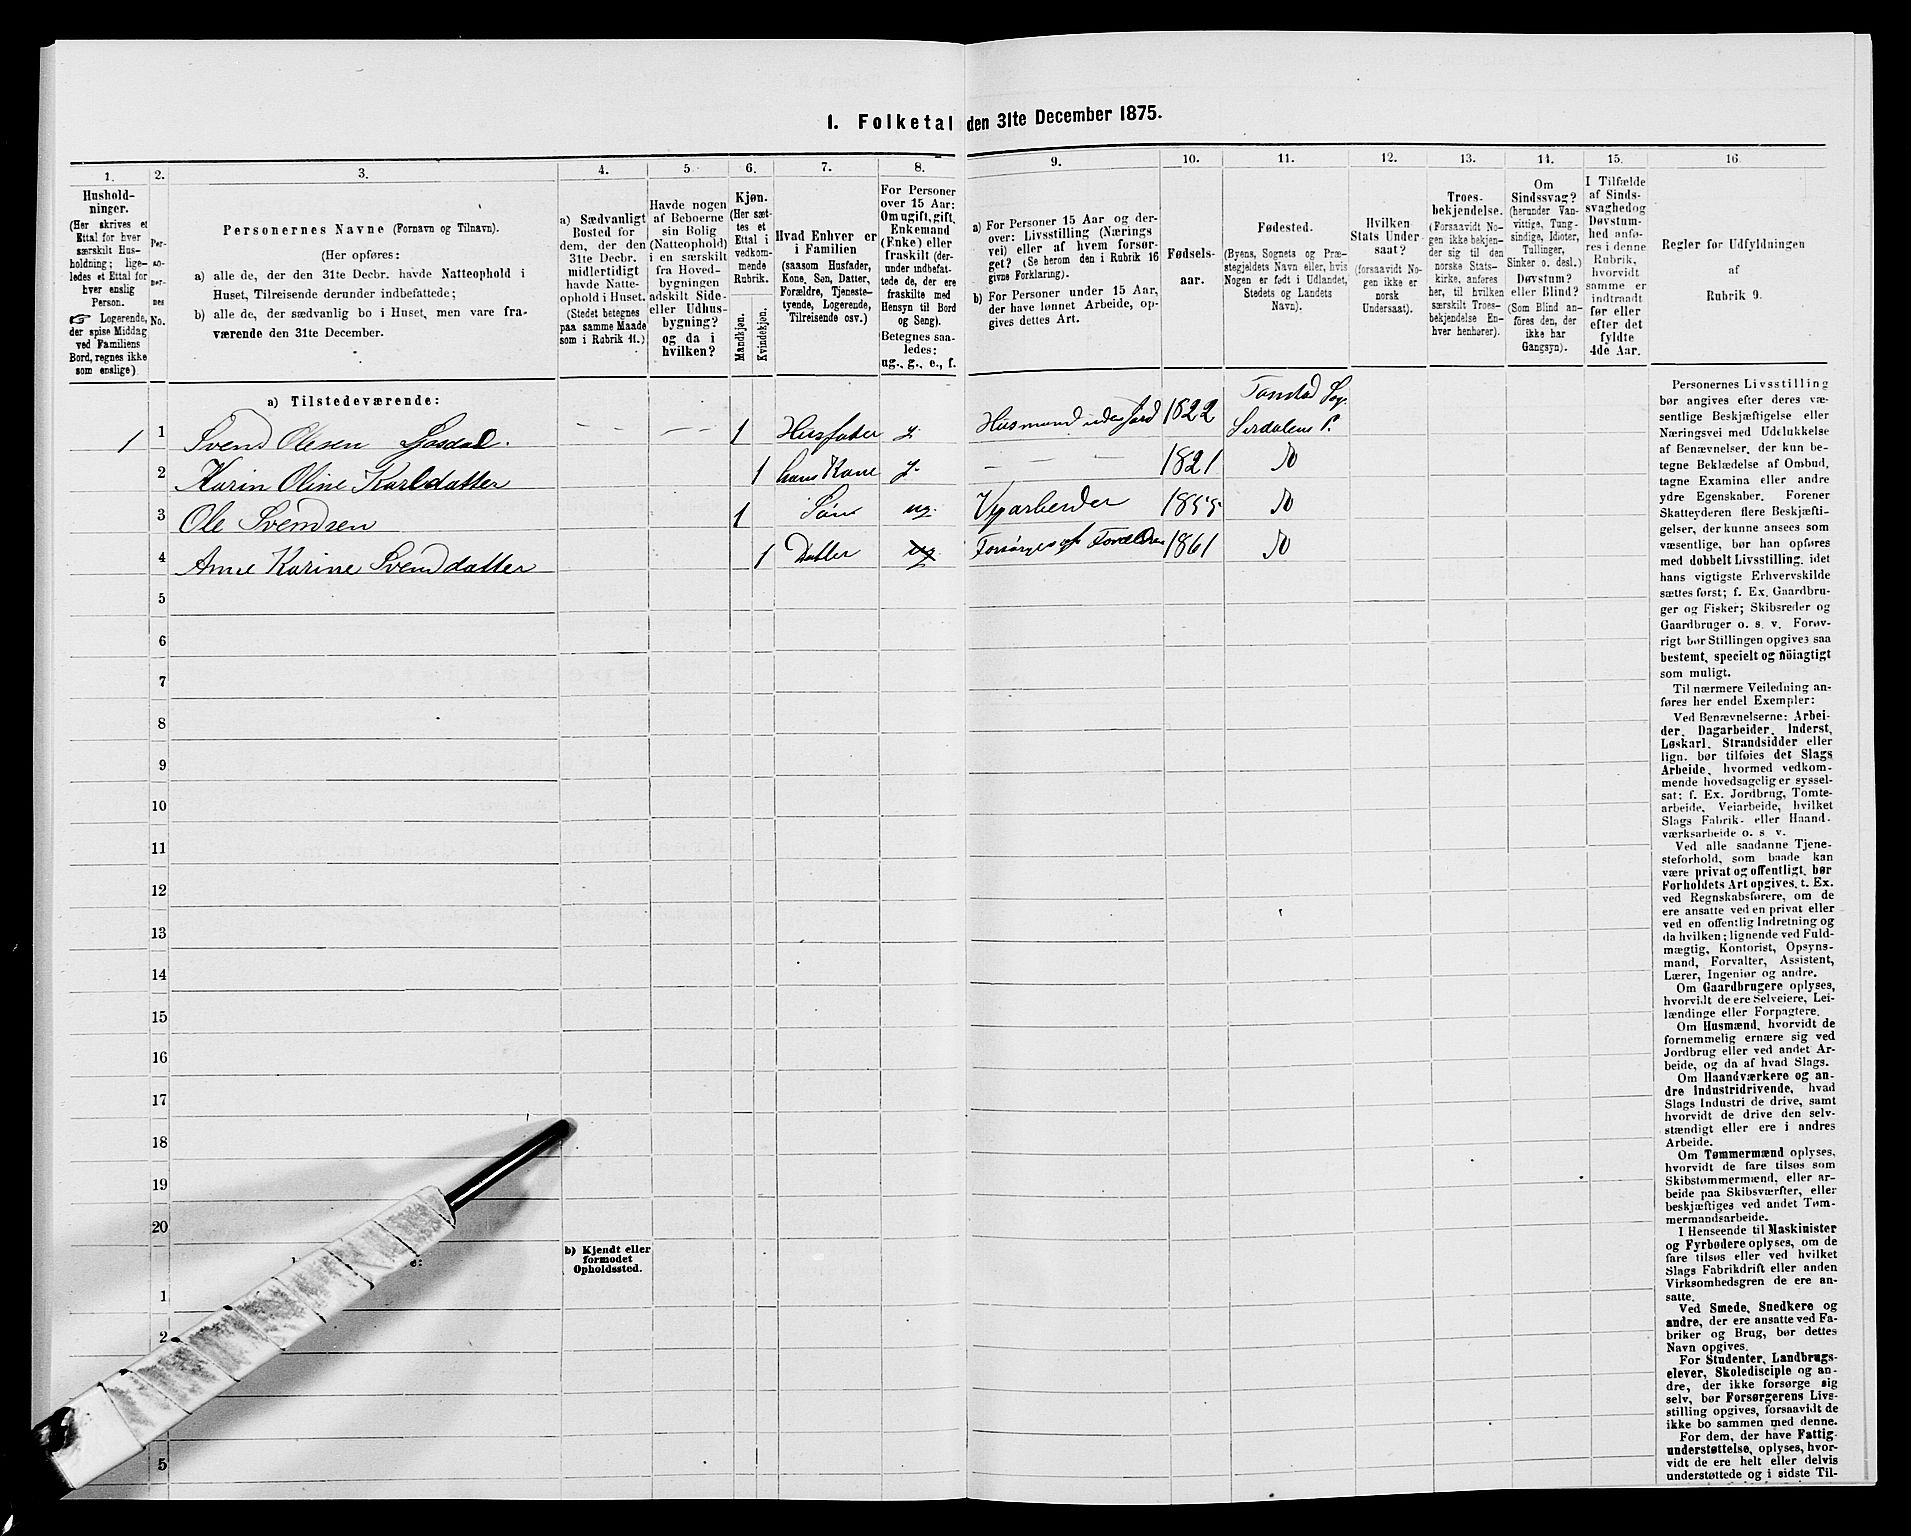 1. Folketal den 31te December 1875.
1.
Hushold-
ninger.
(Her skrives et
Ettal for hver
særskilt Hus-
holdning; lige-
ledes et Ettal for
hver enslig
Person.
☞ Logerende,
der spise Middag
ved Familiens
Bord, regnes ikke
som enslige)
2.
Per-
so-
ner-
nes
No.
3.
Personernes Navne (Fornavn og Tilnavn).
(Her opføres:
a) alle de, der den 31te Decbr. havde Natteophold i
Huset, Tilreisende derunder indbefattede;
b) alle de, der sædvanlig bo i Huset, men vare fra-
værende den 31te December.
4.
a) Sædvanligt
Bosted for
dem, der den
31te Decbr.
midlertidigt
havde Natte-
ophold i Huset.
(Stedet betegnes
paa samme Maade
som i Rubrik 11.)
5
Havde nogen
af Beboerne
sin Bolig
(Natteophold)
i en særskilt
fra Hoved-
bygningen
adskilt Side-
eller Udhus-
bygning?
og da i
hvilken?
6.
Kjøn.
(Her sæt-
tes et
Ettal i
vedkom-
mende
Rubrik.
Mandkjøn.
Kvindekjøn.
7.
Hvad Enhver er
i Familien
(saasom Husfader,
Kone, Søn, Datter,
Forældre, Tjeneste-
tyende, Logerende,
Tilreisende osv.)
8.
For Personer
over 15 Aar:
Om ugift, gift,
Enkemand
(Enke) eller
fraskilt (der-
under indbefat-
tede de, der ere
fraskilte med
Hensyn til Bord
og Seng).
Betegnes saa-
ledes:
ug., g., e., f.
9.
a) For Personer 15 Aar og der-
over: Livsstilling (Nærings
vei) eller af hvem forsør-
get? (Se herom den i Rubrik 16
givne Forklaring).
b) For Personer under 15 Aar,
der have lønnet Arbeide, op-
gives dettes Art.
10.
Fødsels-
aar.
11.
Fødested.
(Byens, Sognets og Præ-
stegjeldets Navn eller, hvis
Nogen er født i Udlandet,
Stedets og Landets
Navn).
12.
Hvilken
Stats Under-
saat?
(forsaavidt No-
gen ikke er
norsk
Undersaat).
13.
Troes-
bekjendelse.
(Forsaavidt No-
gen ikke bekjen-
der sig til den
norske Stats-
kirke, anføres
her, til hvilken
særskilt Troes-
bekjendelse En-
hver henhører).
14.
Om
Sindssvag?
(herunder Van-
vittige, Tung-
sindige, Idioter,
Tullinger,
Sinker o. desl.)
Døvstum?
eller Blind?
(Som Blind an-
føres den, der
ikke har
Gangsyn).
15.
I Tilfælde
af Sinds-
svaghed og
Døvstum-
hed anfø-
res i denne
Rubrik,
hvorvidt
samme er
indtraadt
før eller
efter det
fyldte
4de Aar.
16
Regler før Udfyldningen
af
Rubrik 9.
a) Tilstedeværende:
1 1 Svend Olesen 1 Husfader g. Husmand uden Jord 1822 Tonstad Sog. Sirdalens P.
2 Karin Oline Karlsdatter 1 hans Kone g. 1821 Do
3 Ole Svendsen 1 Søn ug. Vejarbeider 1855 Do
4 Anne Karine Svendsdatter 1 Datter ug. Forsørges af Forældrene 1861 Do
5
6
7
8
9
10
11
12
13
14
15
16
17
18
19
20
b) Kjendt eller
formodet
Opholdssted.
1
2
5
Personernes Livsstilling
bør angives efter deres væ-
sentlige Beskjæftigelse eller
Næringsvei med Udelukkelse
af Benævnelser, der kun be-
tegne Beklædelse af Ombud,
tagne Examina eller andre
ydre Egenskaber. Forener
Skatteyderen flere Beskjæfti-
gelser, der kunne ansees som
væsentlige, bør han opføres
med dobbelt Livsstilling, idet
hans vigtigste Erhvervskilde
sættes først; f. Ex. Gaardbru-
ger og Fisker; Skibsreder og
Gaardbruger o. s. v. Forøv-
rigt bør Stillingen opgives saa
bestemt, specielt og nöiagtigt
som muligt.
Til nærmere Veiledning an-
føres her endel Exempler:
Ved Benævnelserne: Arbei-
der, Dagarbeider, Inderst,
Løskarl, Strandsidder eller
lign. bør tilføies det Slags
Arbeide, hvormed vedkom-
mende hovedsagelig er syssel-
sat; f. Ex. Jordbrug, Tomte-
arbeide, Veiarbeide, hvilket
Slags Fabrik- eller Haand-
værksarbeide o. s. v.
Ved alle saadanne Tjene-
steforhold, som baade kan
være privat og offentligt, bør
Forholdets Art opgives, t. Ex.
ved Regnskabsførere, om de
ere ansatte ved en privat eller
ved en offentlig Indretning og
da hvilken; lignende ved Fuld-
mægtig, Kontorist, Opsyns-
mand, Forvalter, Assistent,
Lærer, Ingeniør og andre.
Om Gaardbrugere oplyses,
hvorvidt de ere Selveiere, Lei-
lændinge eller Forpagtere.
Om Husmænd, hvorvidt de
fornemmelig ernære sig ved
Jordbrug eller ved andet Ar-
beide, og da af hvad Slags.
Om Haandværkere og an-
dre Industridrivende, hvad
Slags Industri de drive, samt
hvorvidt de drive den selv-
stændigt eller ere i andres
Arbeide.
Om Tømmermænd oplyses,
hvorvidt de fare tilsøs som
Skibstømmermænd, eller ar-
beide paa Skibsværfter, eller
beskjæftiges ved andet Tøm-
mermandsarbeide.
I Henseende til Maskinister
og Fyrbødere oplyses, om de
fare tilsøs eller ved hvilket
Slags Fabrikdrift eller anden
Virksomhedsgren de ere an-
satte.
Ved Smede, Snedkere og
andre, der ere ansatte ved Fa-
briker og Brug, bør dettes
Navn opgives.
For Studenter, Landbrugs-
elever, Skoledisciple og an-
dre, der ikke forsørge sig
selv, bør Forsørgerens Livs-
stilling opgives, forsaavidt de
ikke bo sammen med denne.
For dem, der have Fattig-
understøttelse, oplyses, hvor-
vidt de ere helt eller delvis
understøttede og i sidste Til-